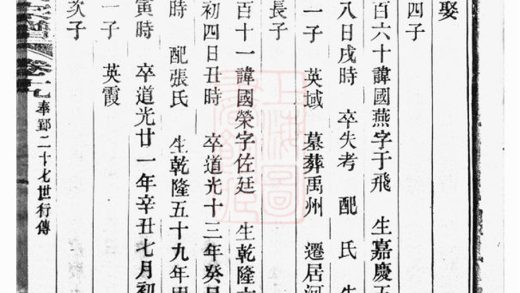 娶
四子
百六十諱國燕字于飛 生嘉慶五
八日戌時 卒失考 配 氏
一子 英域 墓葬禹州 遷居河
長子
百十一諱國榮字佐廷 生乾隆
初四日丑時 卒道光十三年癸巳
時 配張氏 生乾隆五十九年甲
寅時 卒道光廿一年辛丑七月初
一子 英霞
次子
氏譜 卷十九 奉鄞二十七世行傳